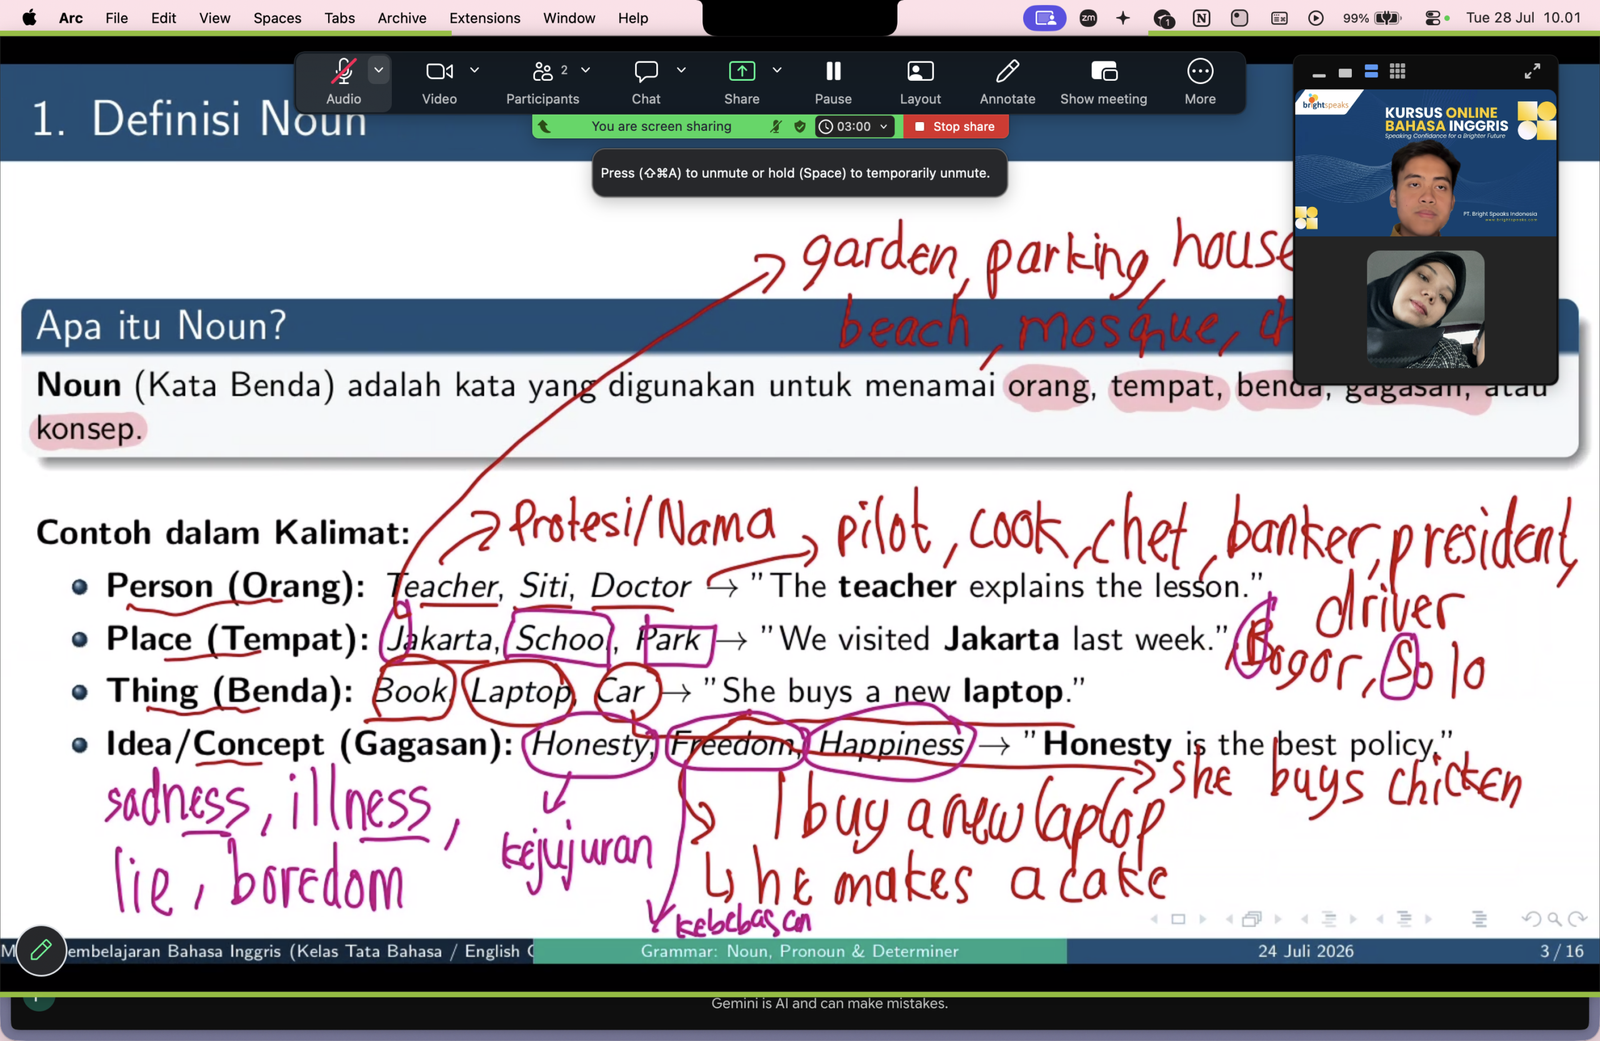 Arc File Edit View Spaces Tabs Archive Extensions Window Help
zm 1 N 99% Tue 28 Jul 10.01
Audio Video 2 Participants Chat Share Pause Layout Annotate Show meeting More
You are screen sharing 03:00 Stop share
Press (⇧⌘A) to unmute or hold (Space) to temporarily unmute.
brightspeaks
KURSUS ONLINE
BAHASA INGGRIS
Speaking Confidence for a Brighter Future
PT. Bright Speaks Indonesia
www.brightspeaks.com
1. Definisi Noun
garden, parking, house
beach, mosque, ch
Apa itu Noun?
Noun (Kata Benda) adalah kata yang digunakan untuk menamai orang, tempat, benda, gagasan, atau
konsep.
Profesi/Nama pilot, cook, chef, banker, president,
driver
Contoh dalam Kalimat:
Person (Orang): Teacher, Siti, Doctor → "The teacher explains the lesson."
Place (Tempat): Jakarta, School, Park → "We visited Jakarta last week."
, Bogor, Solo
Thing (Benda): Book, Laptop, Car → "She buys a new laptop."
Idea/Concept (Gagasan): Honesty, Freedom, Happiness → "Honesty is the best policy."
she buys chicken
sadness, illness,
lie, boredom
kejujuran
I buy a new laptop
he makes a cake
kebebasan
embelajaran Bahasa Inggris (Kelas Tata Bahasa / English Grammar: Noun, Pronoun & Determiner 24 Juli 2026 3 / 16
Gemini is AI and can make mistakes.